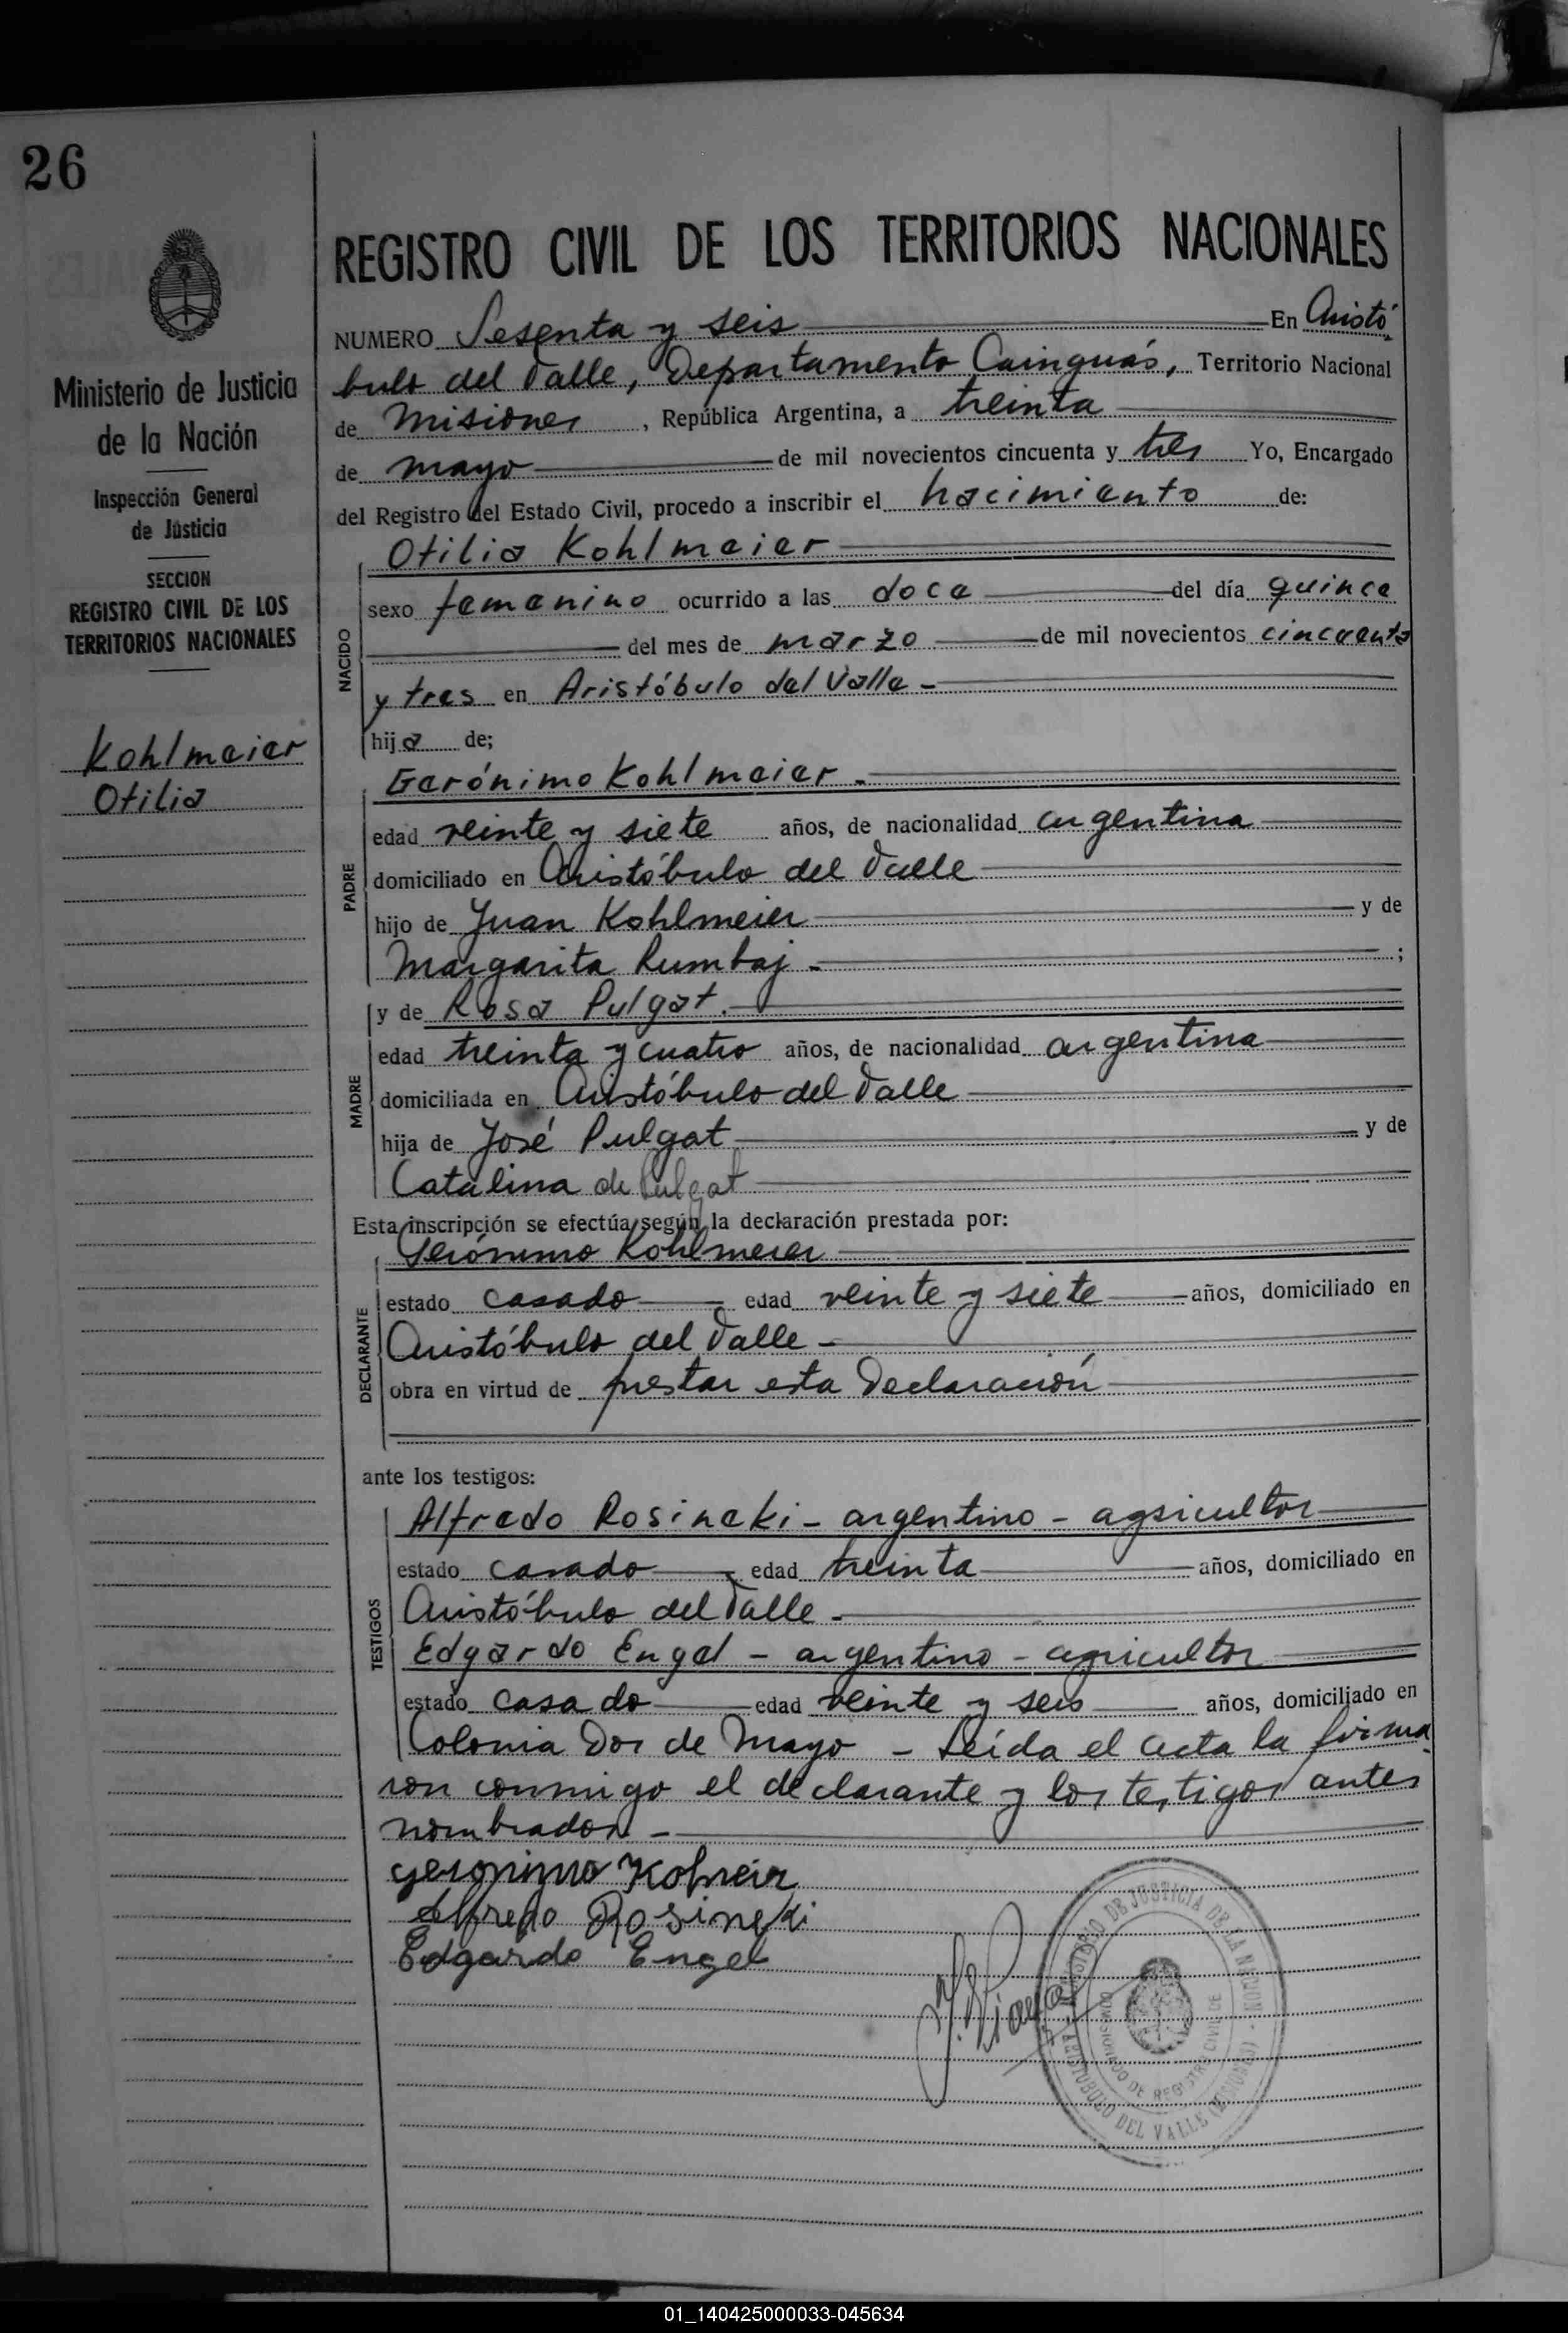 26
Ministerio de Justicia
de la Nación
Inspección General
de Justicia
SECCION
REGISTRO CIVIL DE LOS
TERRITORIOS NACIONALES
Kohlmeier
Otilia
REGISTRO CIVIL DE LOS TERRITORIOS NACIONALES
NUMERO Sesenta y seis En Aristó
bulo del Valle, Departamento Cainguás, Territorio Nacional
de Misiones, República Argentina, a treinta
de mayo de mil novecientos cincuenta y tres Yo, Encargado
del Registro del Estado Civil, procedo a inscribir el nacimiento de:
Otilia Kohlmeier
NACIDO
sexo femenino ocurrido a las doce del día quince
del mes de marzo de mil novecientos cincuenta
y tres en Aristóbulo del Valle -
hija de;
PADRE
Gerónimo Kohlmeier -
edad veinte y siete años, de nacionalidad argentina
domiciliado en Aristóbulo del Valle
hijo de Juan Kohlmeier y de
Margarita Rumbaj - ;
MADRE
y de Rosa Pulgat.
edad treinta y cuatro años, de nacionalidad argentina
domiciliada en Aristóbulo del Valle
hija de José Pulgat y de
Catalina de Pulgat
Esta inscripción se efectúa según la declaración prestada por:
DECLARANTE
Gerónimo Kohlmeier
estado casado edad veinte y siete años, domiciliado en
Aristóbulo del Valle -
obra en virtud de prestar esta Declaración
ante los testigos:
TESTIGOS
Alfredo Rosineki - argentino - agricultor
estado casado edad treinta años, domiciliado en
Aristóbulo del Valle -
Edgardo Engel - argentino - agricultor
estado casado edad veinte y seis años, domiciliado en
Colonia Dos de Mayo - Leída el acta la firma
ron conmigo el declarante y los testigos antes
nombrados -
geronimo Kohmeir
Alfredo Rosineki
Edgardo Engel
MINISTERIO DE JUSTICIA DE LA NACION
REGISTRO CIVIL DE
ARISTOBULO DEL VALLE (MISIONES)
01_140425000033-045634